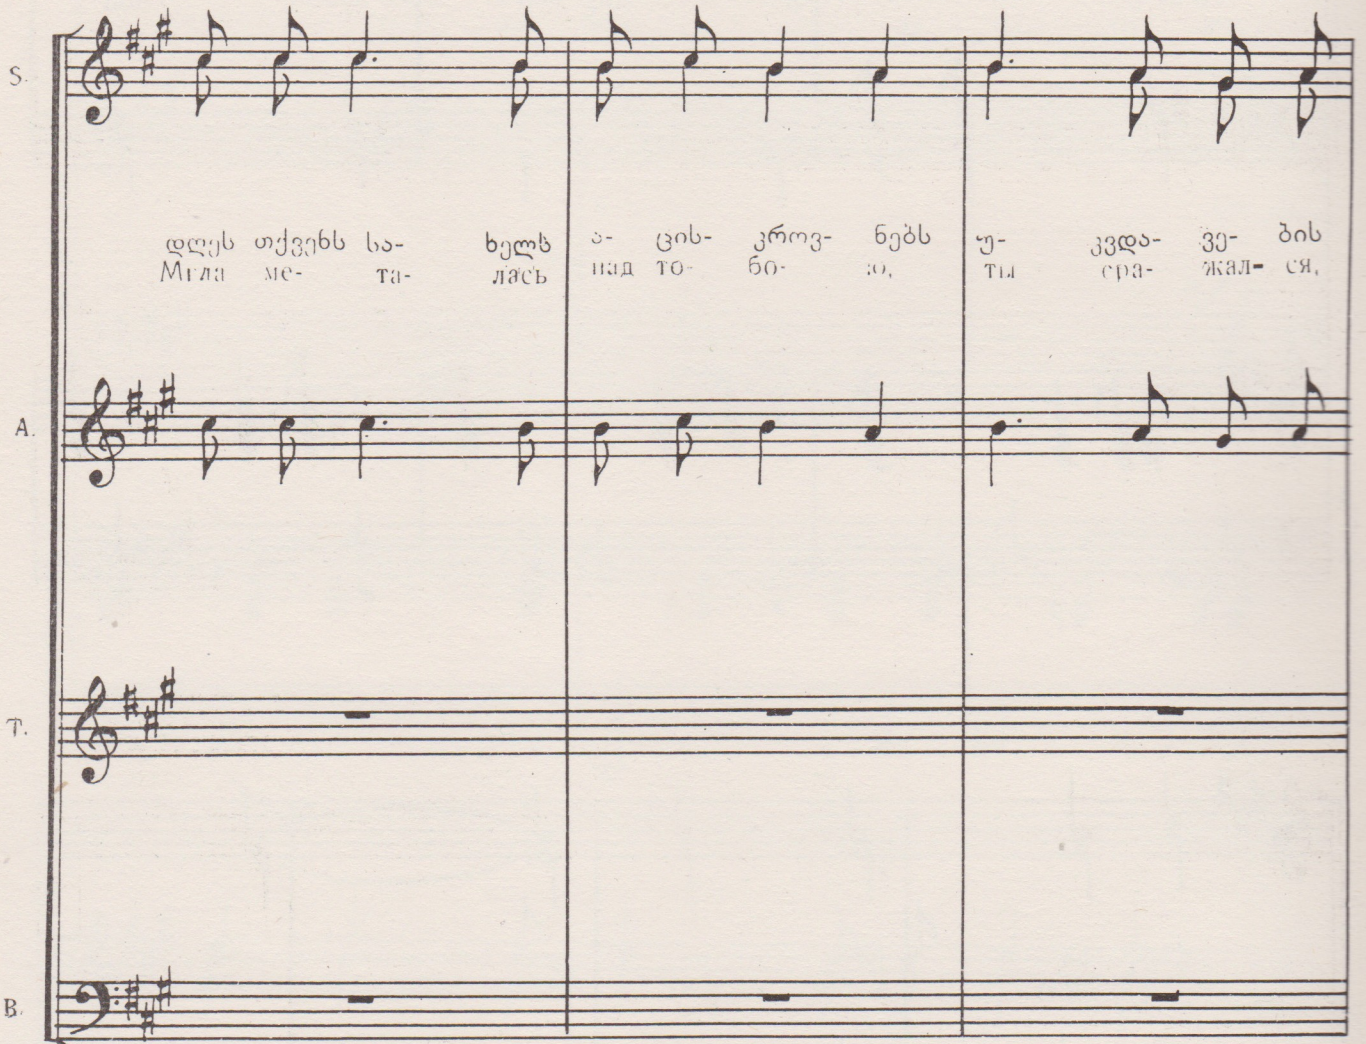 S.
დღეს თქვენს სა- ხელს ა- ცის- კროვ- ნებს უ- კვდა- ვე- ბის
Мгла ме- та- лась над то- бо- ю, ты сра- жал- ся,
A.
T.
B.